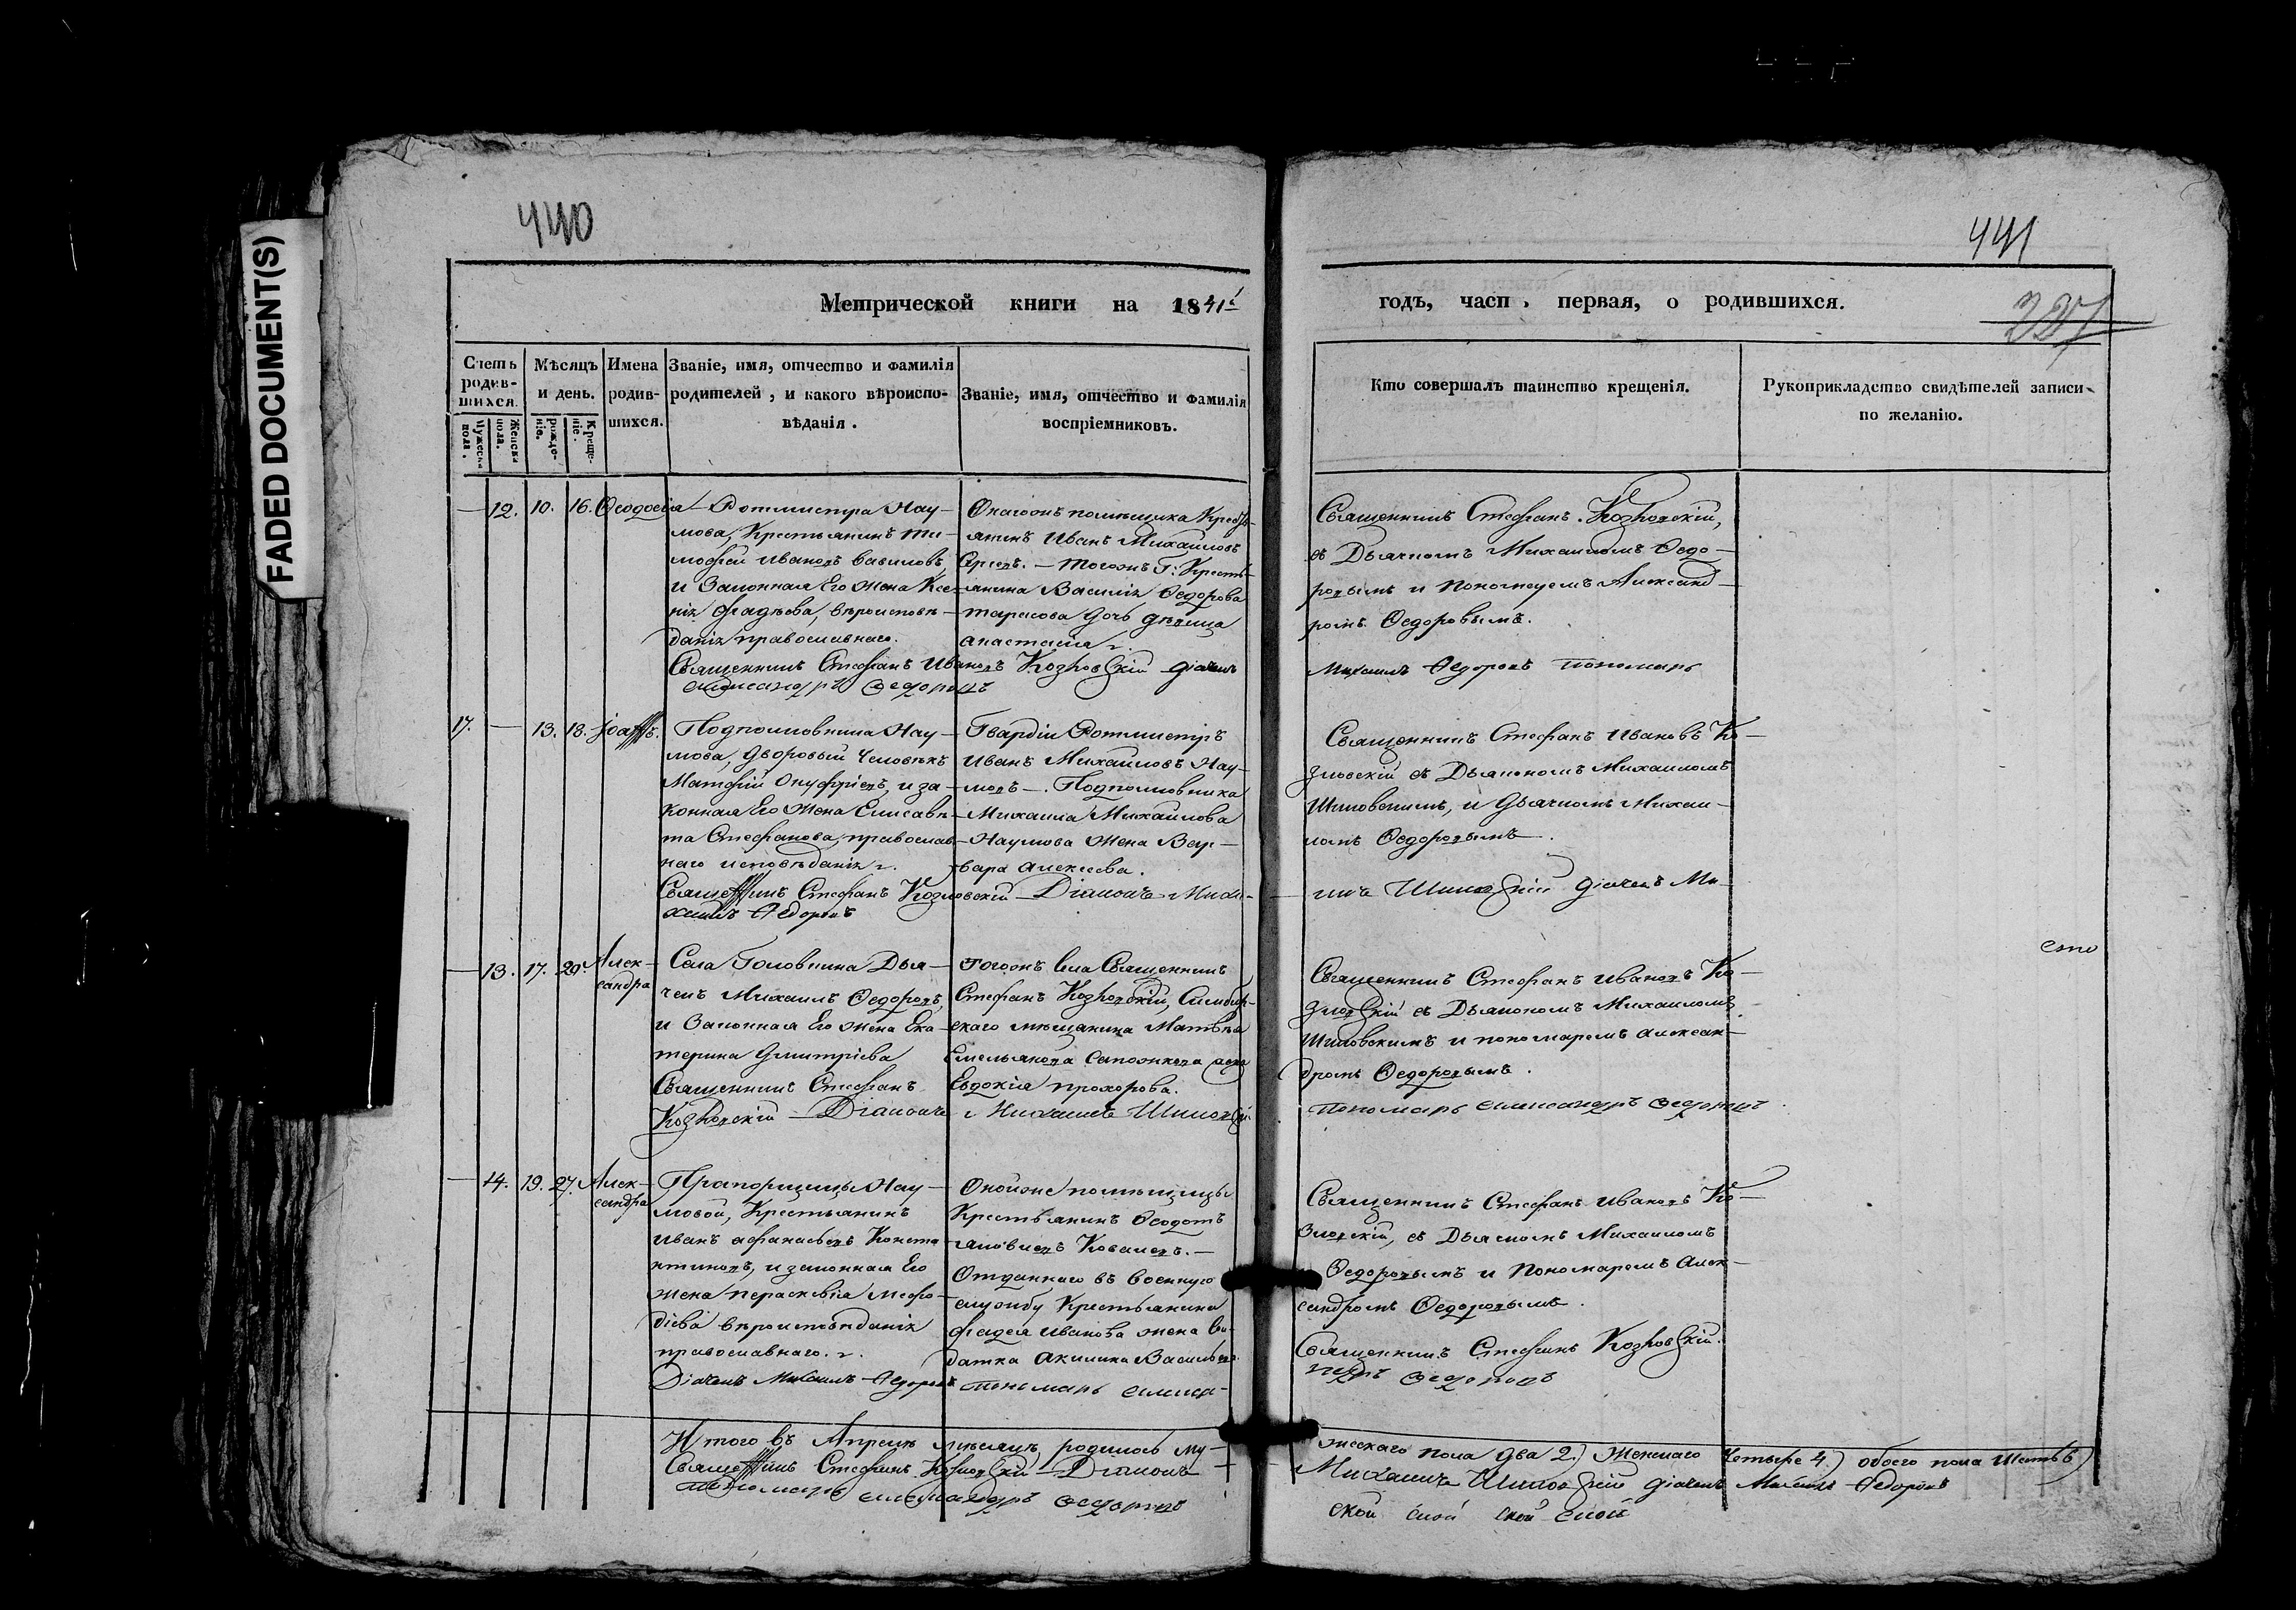 FADED DOCUMENT(S)
440
441
Метрической книги на 1841
годъ, част. первая, о родившихся.
Счетъ родив-шихся.
Мужеска пола.
Женска пола.
Мѣсяцъ и день.
рожде-ніе.
Креще-ніе.
Имена родив-шихся.
Званіе, имя, отчество и фамилія
родителей, и какого вѣроиспо-
вѣданія.
Званіе, имя, отчество и фамилія
воспріемниковъ.
Кто совершалъ таинство крещенія.
Рукоприкладство свидѣтелей записи
по желанію.
— 12. 10. 16. Ѳеодосія
Ротмистра Нау-
мова, Крестьянинъ Ти-
мофей Ивановъ Вавиловъ,
и Законная Его жена Ксе-
нія Фадѣева, вѣроисповѣ-
данія православнаго.
Священникъ Стефанъ Ивановъ Козловскій Діачекъ
Александръ Ѳедоровъ
Онагожъ помѣщика Кресть-
янинъ Иванъ Михайловъ
тогожъ Г: Кресть-
янина Василія Ѳедорова
тарасова дочь дѣвица
анастасія
Священникъ Стефанъ Козловскій,
съ Дьячкомъ Михаиломъ Ѳедо-
ровымъ и Пономаремъ Александ-
ромъ Ѳедоровымъ.
Михаилъ Ѳедоровъ пономарь
17. — 13. 18. Іоаннъ.
Подполковника Нау-
мова, дворовый Человѣкъ
Матфій Онуфріевъ, и за-
конная Его жена Елисаве-
та Стефанова, православ-
наго исповѣданія
Священникъ Стефанъ Козловскій Діаконъ Миха-
хаилъ Ѳедоровъ
Гвардіи Ротмистръ
Иванъ Михайловъ Нау-
мовъ —. Подполковника
Михаила Михайлова
Наумова жена Вар-
вара Алексеева.
Священникъ Стефанъ Ивановъ Ко-
зловскій съ Дьякономъ Михаиломъ
Шиловскимъ, и Дьячкомъ Михаи-
ломъ Ѳедоровымъ.
илъ Шиловскій Діачекъ Ми-
— 13. 17. 29. Алек-
сандра
Села Головкина Дья-
чекъ Михаилъ Ѳедоровъ,
и Законная Его жена Ека-
терина Дмитріева
Священникъ Стефанъ
Козловскій Діаконъ Михаилъ Шиловскій
тогожъ села Священникъ
Стефанъ Козловскій, Симбир-
скаго мѣщанина Матвѣя
Емельянова Сапожкова
Евдокія прохорова.
Священникъ Стефанъ Ивановъ Ко-
зловскій съ Дьякономъ Михаиломъ
Шиловскимъ и пономаремъ Алексан-
дромъ Ѳедоровымъ.
пономарь Александръ Ѳедоровъ
— 14. 19. 27. Алек-
сандра
Прапорщицы Нау-
мовой, Крестьянинъ
Иванъ Афанасьевъ Конста-
нтиновъ, и законная Его
жена параскевія Мефо-
діева вѣроисповѣданія
православнаго.
Діачекъ Михаилъ Ѳедоровъ пономарь Алекса-
Онойже помѣщицы
Крестьянинъ Ѳеодотъ
Яковлевъ Ковалевъ. —
Отданнаго въ военную
службу Крестьянина
Фадея Иванова жена Со-
датка Акилина Васильева
Священникъ Стефанъ Ивановъ Ко-
зловскій, съ Дьячкомъ Михаиломъ
Ѳедоровымъ и Пономаремъ Алек-
сандромъ Ѳедоровымъ.
Священникъ Стефанъ Козловскій.
ндръ Ѳедоровъ
Итого въ Апрелѣ мѣсяцѣ родилось му-
жескаго пола два 2.) женскаго Четыре 4.) обоего пола Шесть 6)
Священникъ Стефанъ Козловскій Діаконъ
Михаилъ Шиловскій Діачекъ Михаилъ Ѳедоровъ
пономарь Александръ Ѳедоровъ